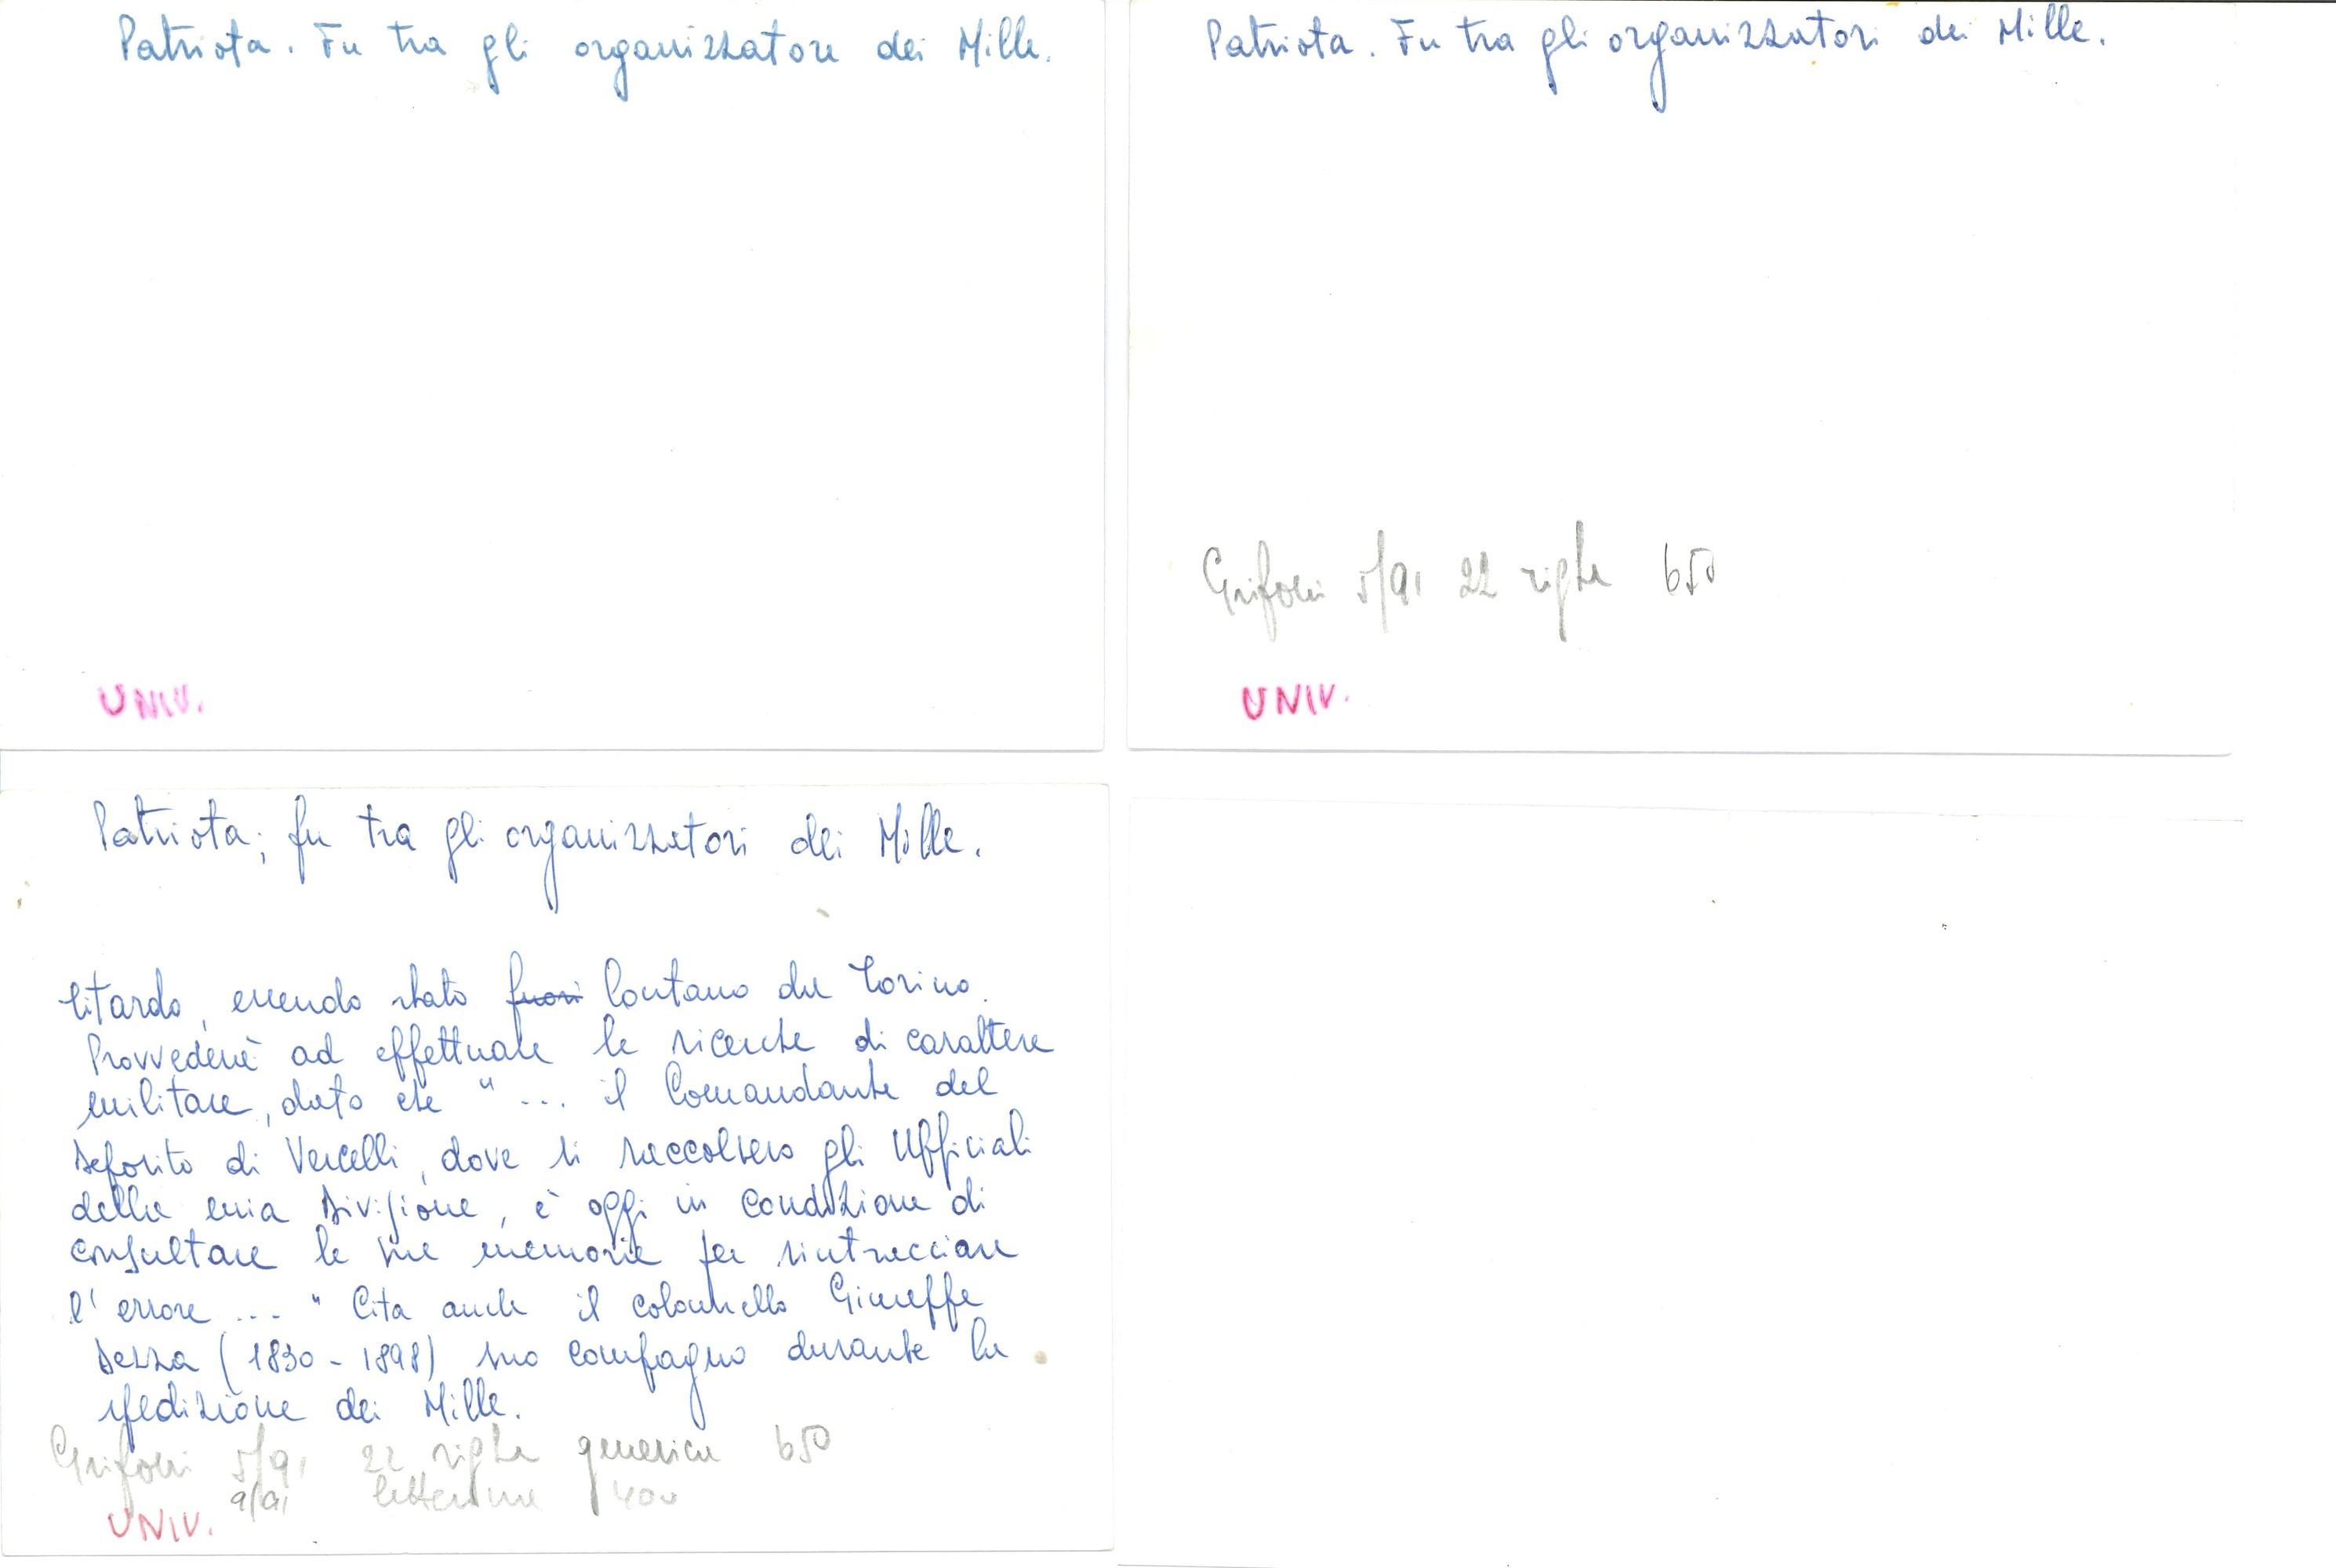 Patriota. Fu tra gli organizzatori dei Mille.
UNIV.
Patriota. Fu tra gli organizzatori dei Mille.
Grifoni 5/91 22 righe 650
UNIV.
Patriota; fu tra gli organizzatori dei Mille.
ritardo, essendo stato fuori lontano da Torino.
Provvederà ad effettuare le ricerche di carattere
militare, dato che "... il Comandante del
Deposito di Vercelli, dove si raccolsero gli Ufficiali
della mia Divisione, è oggi in condizione di
consultare le sue memorie per rintracciare
l'errore ... " Cita anche il colonnello Giuseppe
Dezza (1830-1898) suo compagno durante la
spedizione dei Mille.
Grifoni 5/91 22 righe generica 650
9/91 letterina 400
UNIV.